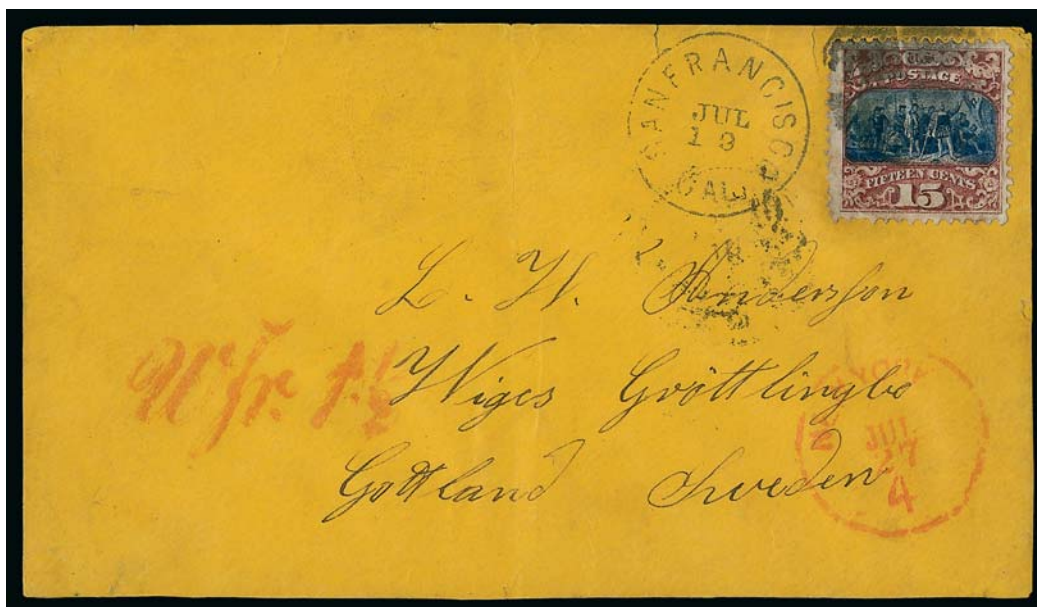 SAN FRANCISCO
JUL
18
CAL.
U.S.
POSTAGE
FIFTEEN CENTS
15
L. W. Anderson
Wiges Gröttlingbo
Gottland Sweden
NEW YORK
JUL
27
4